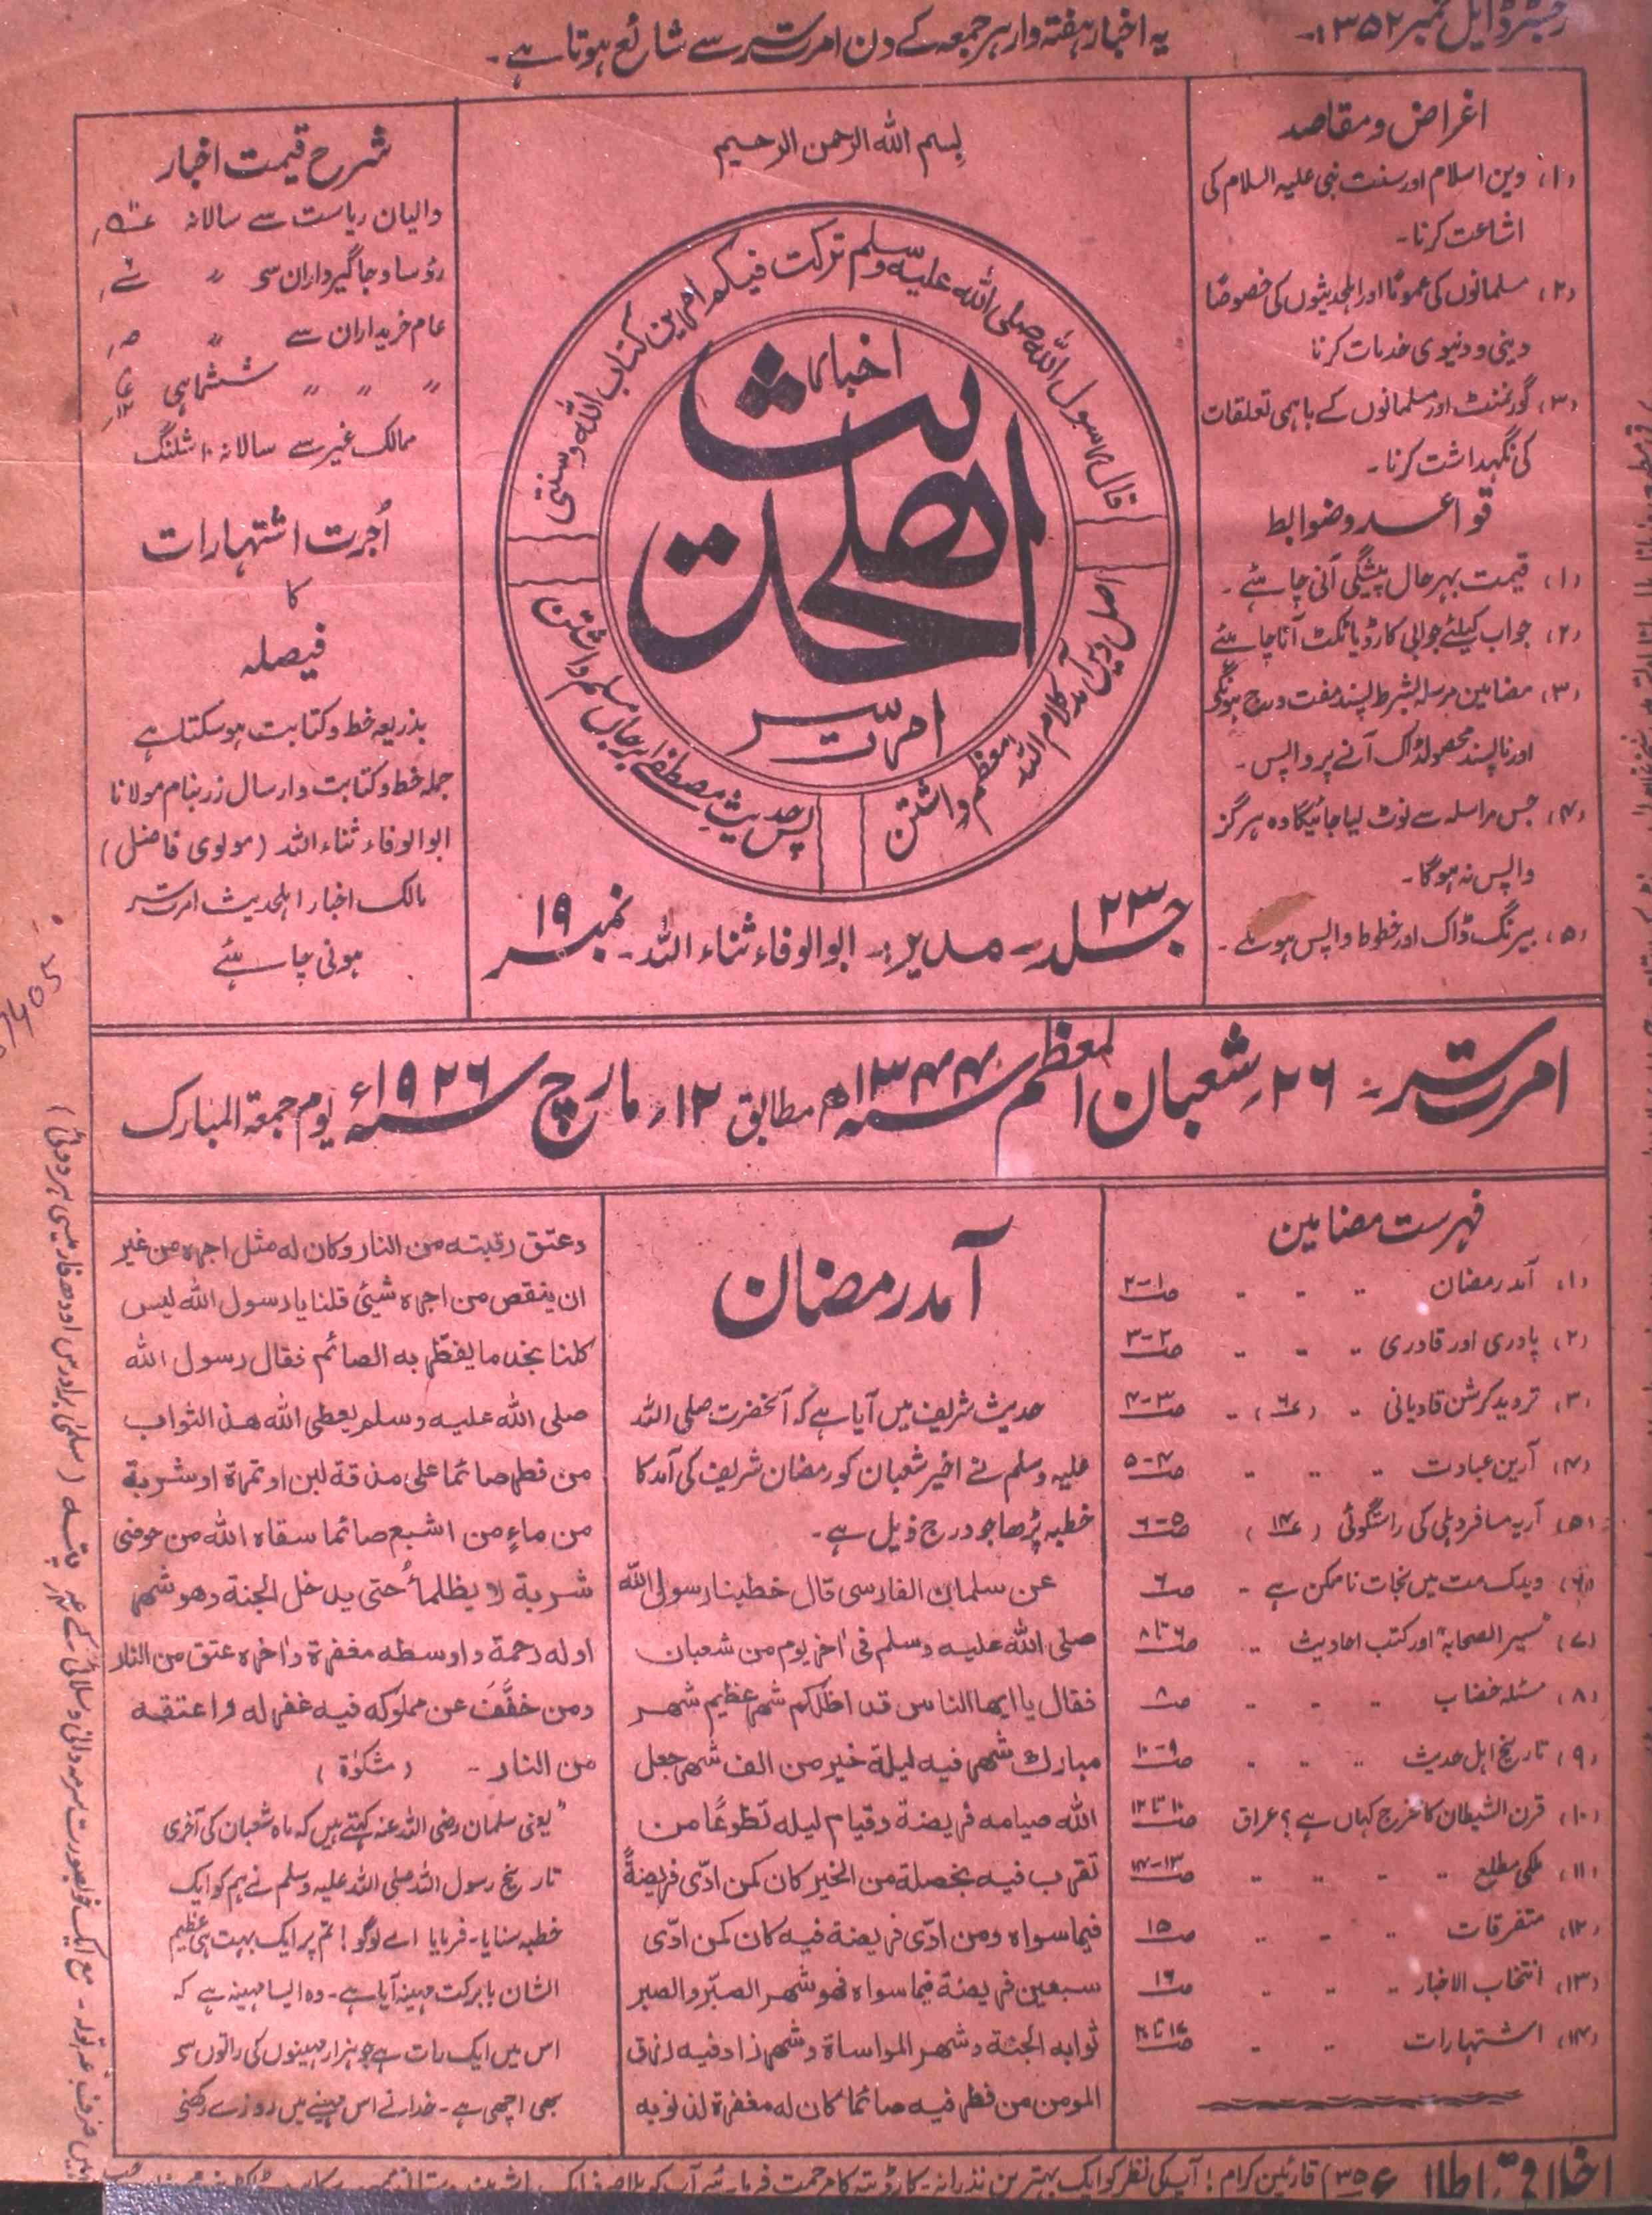 رجسٹرڈ ایل نمبر ۳۵۲
یہ اخبار ہفتہ وار ہر جمعہ کے دن امرتسر سے شائع ہوتا ہے۔
اغراض و مقاصد
(۱) دین اسلام اور سنت نبی علیہ السلام کی
اشاعت کرنا۔
(۲) مسلمانوں کی عموماً اور اہلحدیثوں کی خصوصاً
دینی و دنیوی خدمات کرنا
(۳) گورنمنٹ اور مسلمانوں کے باہمی تعلقات
کی نگہداشت کرنا۔
قواعد و ضوابط
(۱) قیمت بہرحال پیشگی آنی چاہئے۔
(۲) جواب کیلئے جوابی کارڈ یا ٹکٹ آنا چاہئے
(۳) مضامین مرسلہ بشرط پسند مفت درج ہونگے
اور ناپسند محصولڈاک آنے پر واپس۔
(۴) جس مراسلہ سے نوٹ لیا جائیگا وہ ہرگز
واپس نہ ہوگا۔
(۵) بیرنگ ڈاک اور خطوط واپس ہونگے۔
بسم اللہ الرحمن الرحیم
قال رسول اللہ صلی اللہ علیہ وسلم ترکت فیکم امرین کتاب اللہ وسنتی
اصل دین آمد کلام اللہ معظم داشتن
پس حدیث مصطفےٰ برجاں مسلم داشتن
اخبار
اھلحدیث
امرتسر
جلد ۲۳ - مدیر:- ابو الوفاء ثناء اللہ - نمبر ۱۹
شرح قیمت اخبار
والیان ریاست سے سالانہ
رؤسا و جاگیرداران سے 〃
عام خریداران سے 〃
〃 〃 〃 ششماہی
ممالک غیر سے سالانہ ۱۰ شلنگ
اُجرت اشتہارات
کا
فیصلہ
بذریعہ خط و کتابت ہوسکتا ہے
جملہ خط و کتابت و ارسال زر بنام مولانا
ابو الوفاء ثناء اللہ (مولوی فاضل)
مالک اخبار اہلحدیث امرتسر
ہونی چاہئے
امرتسر:- ۲۶ شعبان المعظم سنہ ۱۳۴۴ھ مطابق ۱۲ مارچ سنہ ۱۹۲۶ء یوم جمعۃ المبارک
فہرست مضامین
(۱) آمد رمضان - - - صـ۱-۲
(۲) پادری اور قادری - - - صـ۲-۳
(۳) تردید کرشن قادیانی - (۶) - صـ۳-۴
(۴) آرین عبادت - - - صـ۴-۵
(۵) آریہ مسافر دہلی کی راستگوئی (۱۴) صـ۵-۶
(۶) ویدک مت میں نجات ناممکن ہے - صـ۶
(۷) سیر الصحابہؓ اور کتب احادیث - صـ۶ تا ۸
(۸) مسئلہ خضاب - - - صـ۸
(۹) تاریخ اہل حدیث - - - صـ۹-۱۰
(۱۰) قرن الشیطان کا مخرج کہاں ہے؟ عراق صـ۱۰ تا ۱۲
(۱۱) ملکی مطلع - - - صـ۱۳-۱۴
(۱۲) متفرقات - - - صـ۱۵
(۱۳) انتخاب الاخبار - - - صـ۱۶
(۱۴) اشتہارات - - صـ۱۷ تا ۲۰
آمد رمضان
حدیث شریف میں آیا ہے کہ آنحضرت صلی اللہ
علیہ وسلم نے اخیر شعبان کو رمضان شریف کی آمد کا
خطبہ پڑھا جو درج ذیل ہے۔
عن سلمان الفارسی قال خطبنا رسول اللہ
صلی اللہ علیہ وسلم فی اٰخر یوم من شعبان
فقال یا ایھا الناس قد اظلکم شھر عظیم شھر
مبارک شھر فیہ لیلۃ خیر من الف شھر جعل
اللہ صیامہ فریضۃ وقیام لیلہ تطوعًا من
تقرب فیہ بخصلۃ من الخیر کان کمن ادّی فریضۃً
فیما سواہ ومن ادّی فریضۃ فیہ کان کمن ادّی
سبعین فریضۃ فیما سواہ فھو شھر الصبر والصبر
ثوابہ الجنۃ وشھر المواساۃ وشھر زاد فیہ رزق
المومن من فطر فیہ صائما کان لہ مغفرۃ لذنوبہ
وعتق رقبتہ من النار وکان لہ مثل اجرہ من غیر
ان ینقص من اجرہ شیئ قلنا یا رسول اللہ لیس
کلنا یجد ما یفطر بہ الصائم فقال رسول اللہ
صلی اللہ علیہ وسلم یعطی اللہ ھذا الثواب
من فطر صائما علی مذقۃ لبن او تمرۃ او شربۃ
من ماءٍ من اشبع صائما سقاہ اللہ من حوضی
شربۃ لا یظلمأ حتی یدخل الجنۃ وھو شھر
اولہ رحمۃ و اوسطہ مغفرۃ واٰخرہ عتق من النار
ومن خفّف عن مملوکہ فیہ غفر لہ و اعتقہ
من النار - (مشکوٰۃ)
"یعنی سلمان رضی اللہ عنہ کہتے ہیں کہ ماہ شعبان کی آخری
تاریخ رسول اللہ صلی اللہ علیہ وسلم نے ہم کو ایک
خطبہ سنایا۔ فرمایا اے لوگو! تم پر ایک بہت ہی عظیم
الشان بابرکت مہینہ آیا ہے۔ وہ ایسا مہینہ ہے کہ
اس میں ایک رات ہے جو ہزار مہینوں کی راتوں سے
بھی اچھی ہے۔ خدا نے اس مہینے میں روزے رکھنے